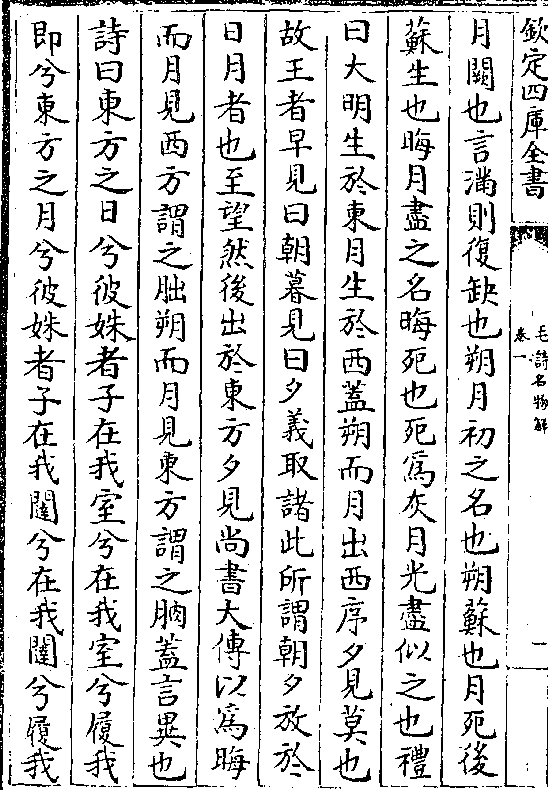 欽定四庫全書
毛詩名物解
卷一
一
月闕也言滿則復缺也朔月初之名也朔蘇也月死後
蘇生也晦月盡之名晦死也死爲灰月光盡似之也禮
曰大明生於東月生於西蓋朔而月出西序夕見莫也
故王者早見曰朝暮見曰夕義取諸此所謂朝夕放於
日月者也至望然後出於東方夕見尚書大傳以爲晦
而月見西方謂之朏朔而月見東方謂之朒蓋言異也
詩曰東方之日兮彼姝者子在我室兮在我室兮履我
即兮東方之月兮彼姝者子在我闥兮在我闥兮履我